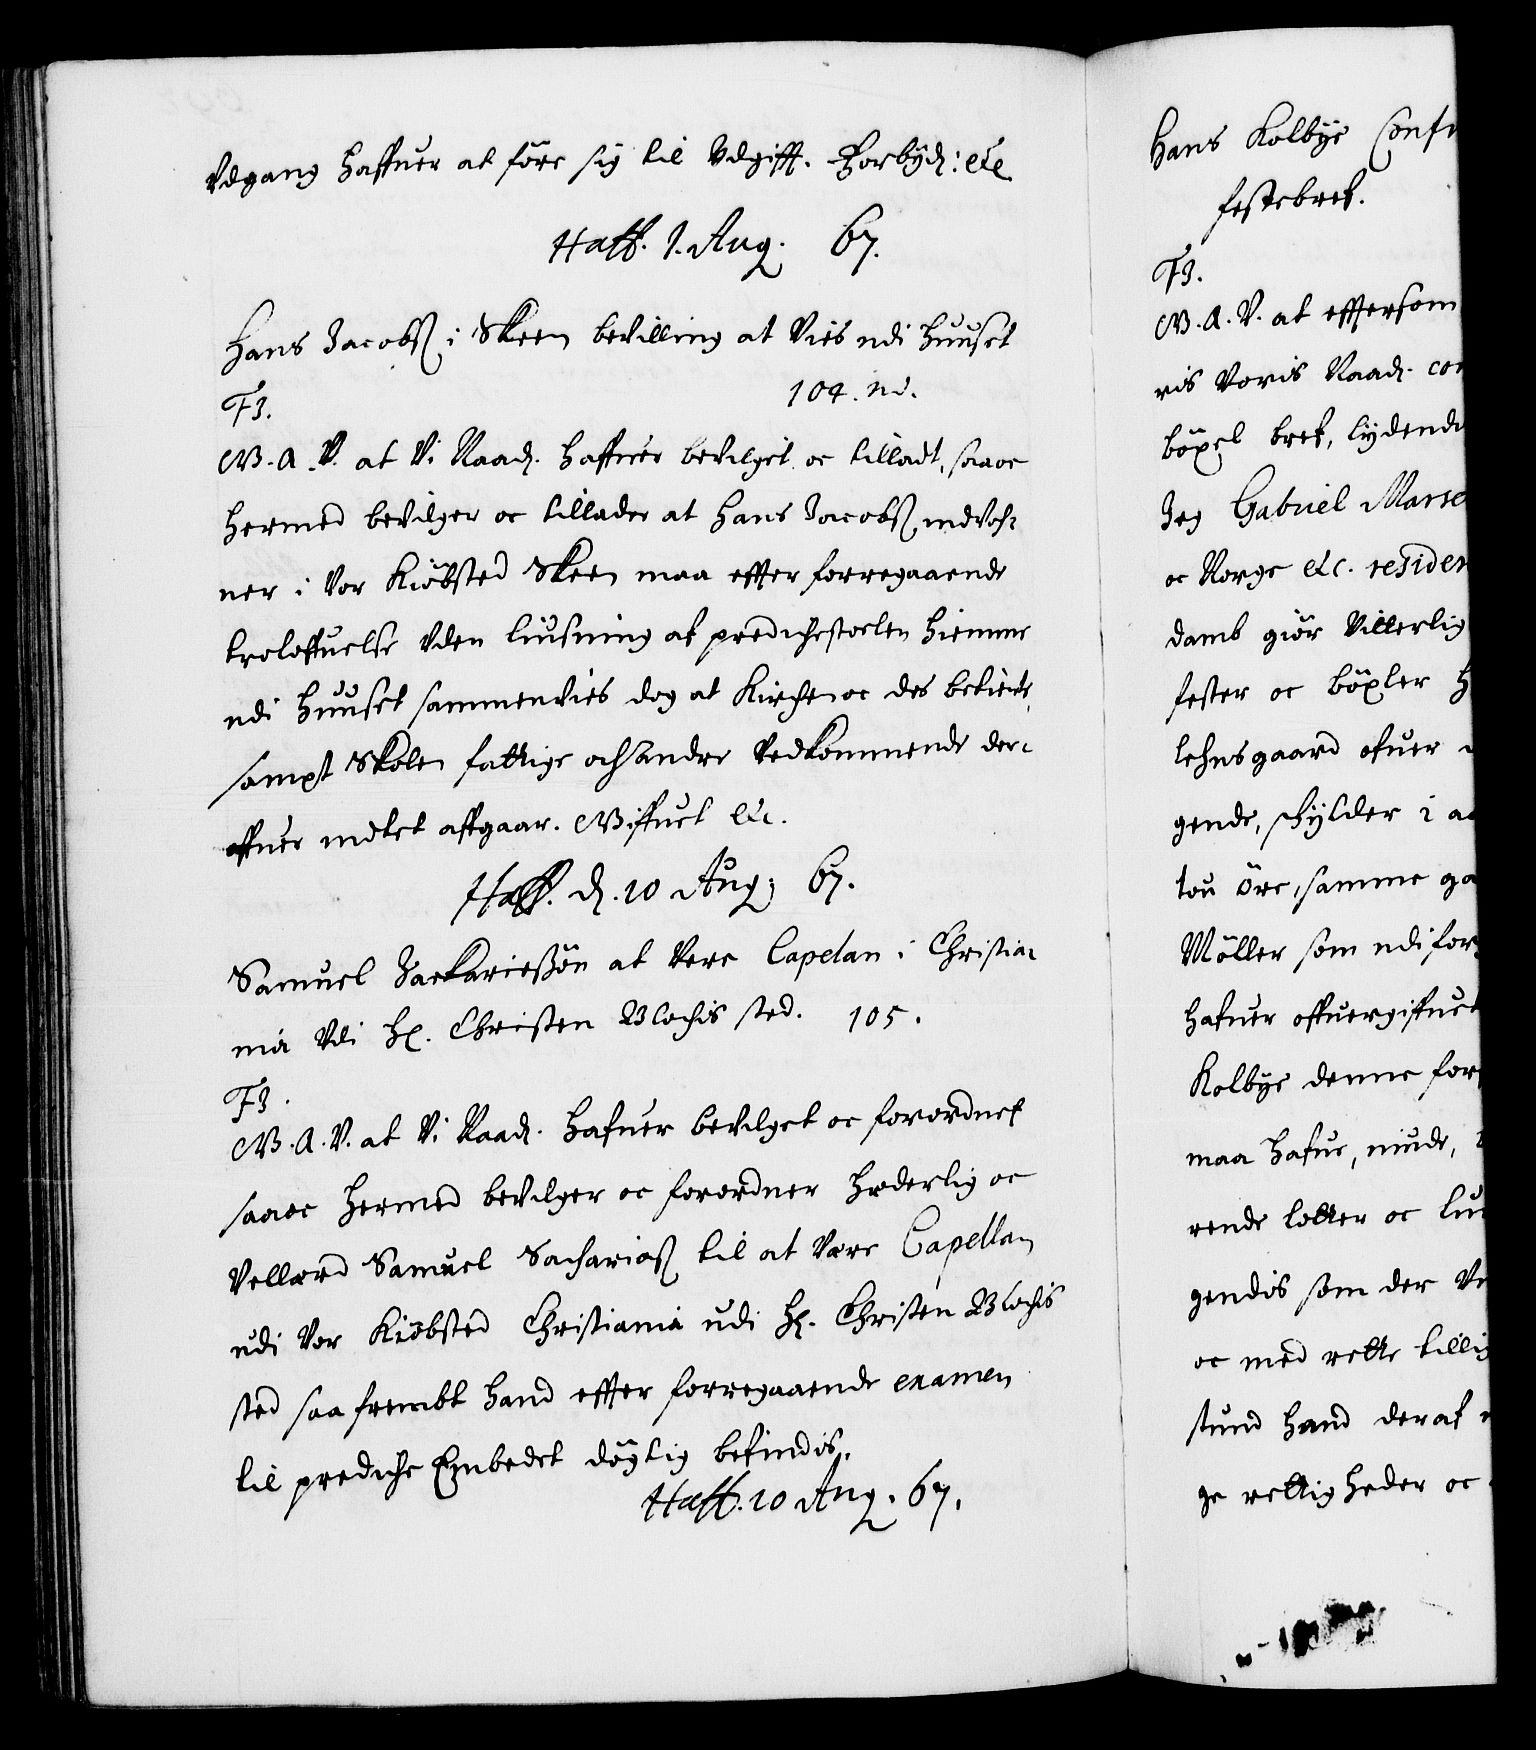 Udgang haffuer at före sig til Udgifft. Forbyd: etc
Haff. 1. Aug. 67.
Hans Jacobß i Skeen bevilling at Vies udi huuset
104. nd.
F3.
W. A. V. at Vi Naad. haffuer bevilget oc tilladt, saa oc
hermed bevilger oc tillader at Hans Jacobß indvoh-
ner i Vor Kiöbsted Skeen maa effter foregaaende
troloffuelse Uden liusning af predichestoelen hiemme
udi huuset sammenvies dog at Kirchen oc des betiente,
sampt Skolen fattige och andre Vedkommende der-
offuer indtet affgaar. Wiffuet etc.
Haff. d. 10 Aug: 67.
Samuel Zackarießön at Vere Capelan i Christia-
nia Vdi Hr. Christen Blochis sted. 105.
F3.
W. A. V. at Vi Naad. hafuer bevilget oc forordnet
saa oc hermed bevilger oc forordner hæderlig oc
Vellærd Samuel Sachariaß til at Være Capellan
udi Vor Kiöbsted Christiania udi Hr. Christen Blochis
sted saa frembt hand effter foregaaende examen
til prediche Embedet döytig befindis.
Haff. 10 Aug. 67.
Hans Kolbye Conf
festebref.
F3.
W. A. V. at efftersom
vis Voris Naad. co
böxel bref, lydende
Jeg Gabriel Marse
oc Norge etc. residen
damb giör Vitterlig
fester oc böxler H
lehnsgaard ofuer
gende, skylder i a
tou öre, samme ga
Möller som udi for
hafuer offuergiffuet
Kolbye denne for
maa hafue, niude,
rende lotter oc lu
gendis som der V
oc med rette tillig
stund hand deraf
ge rettigheder oc